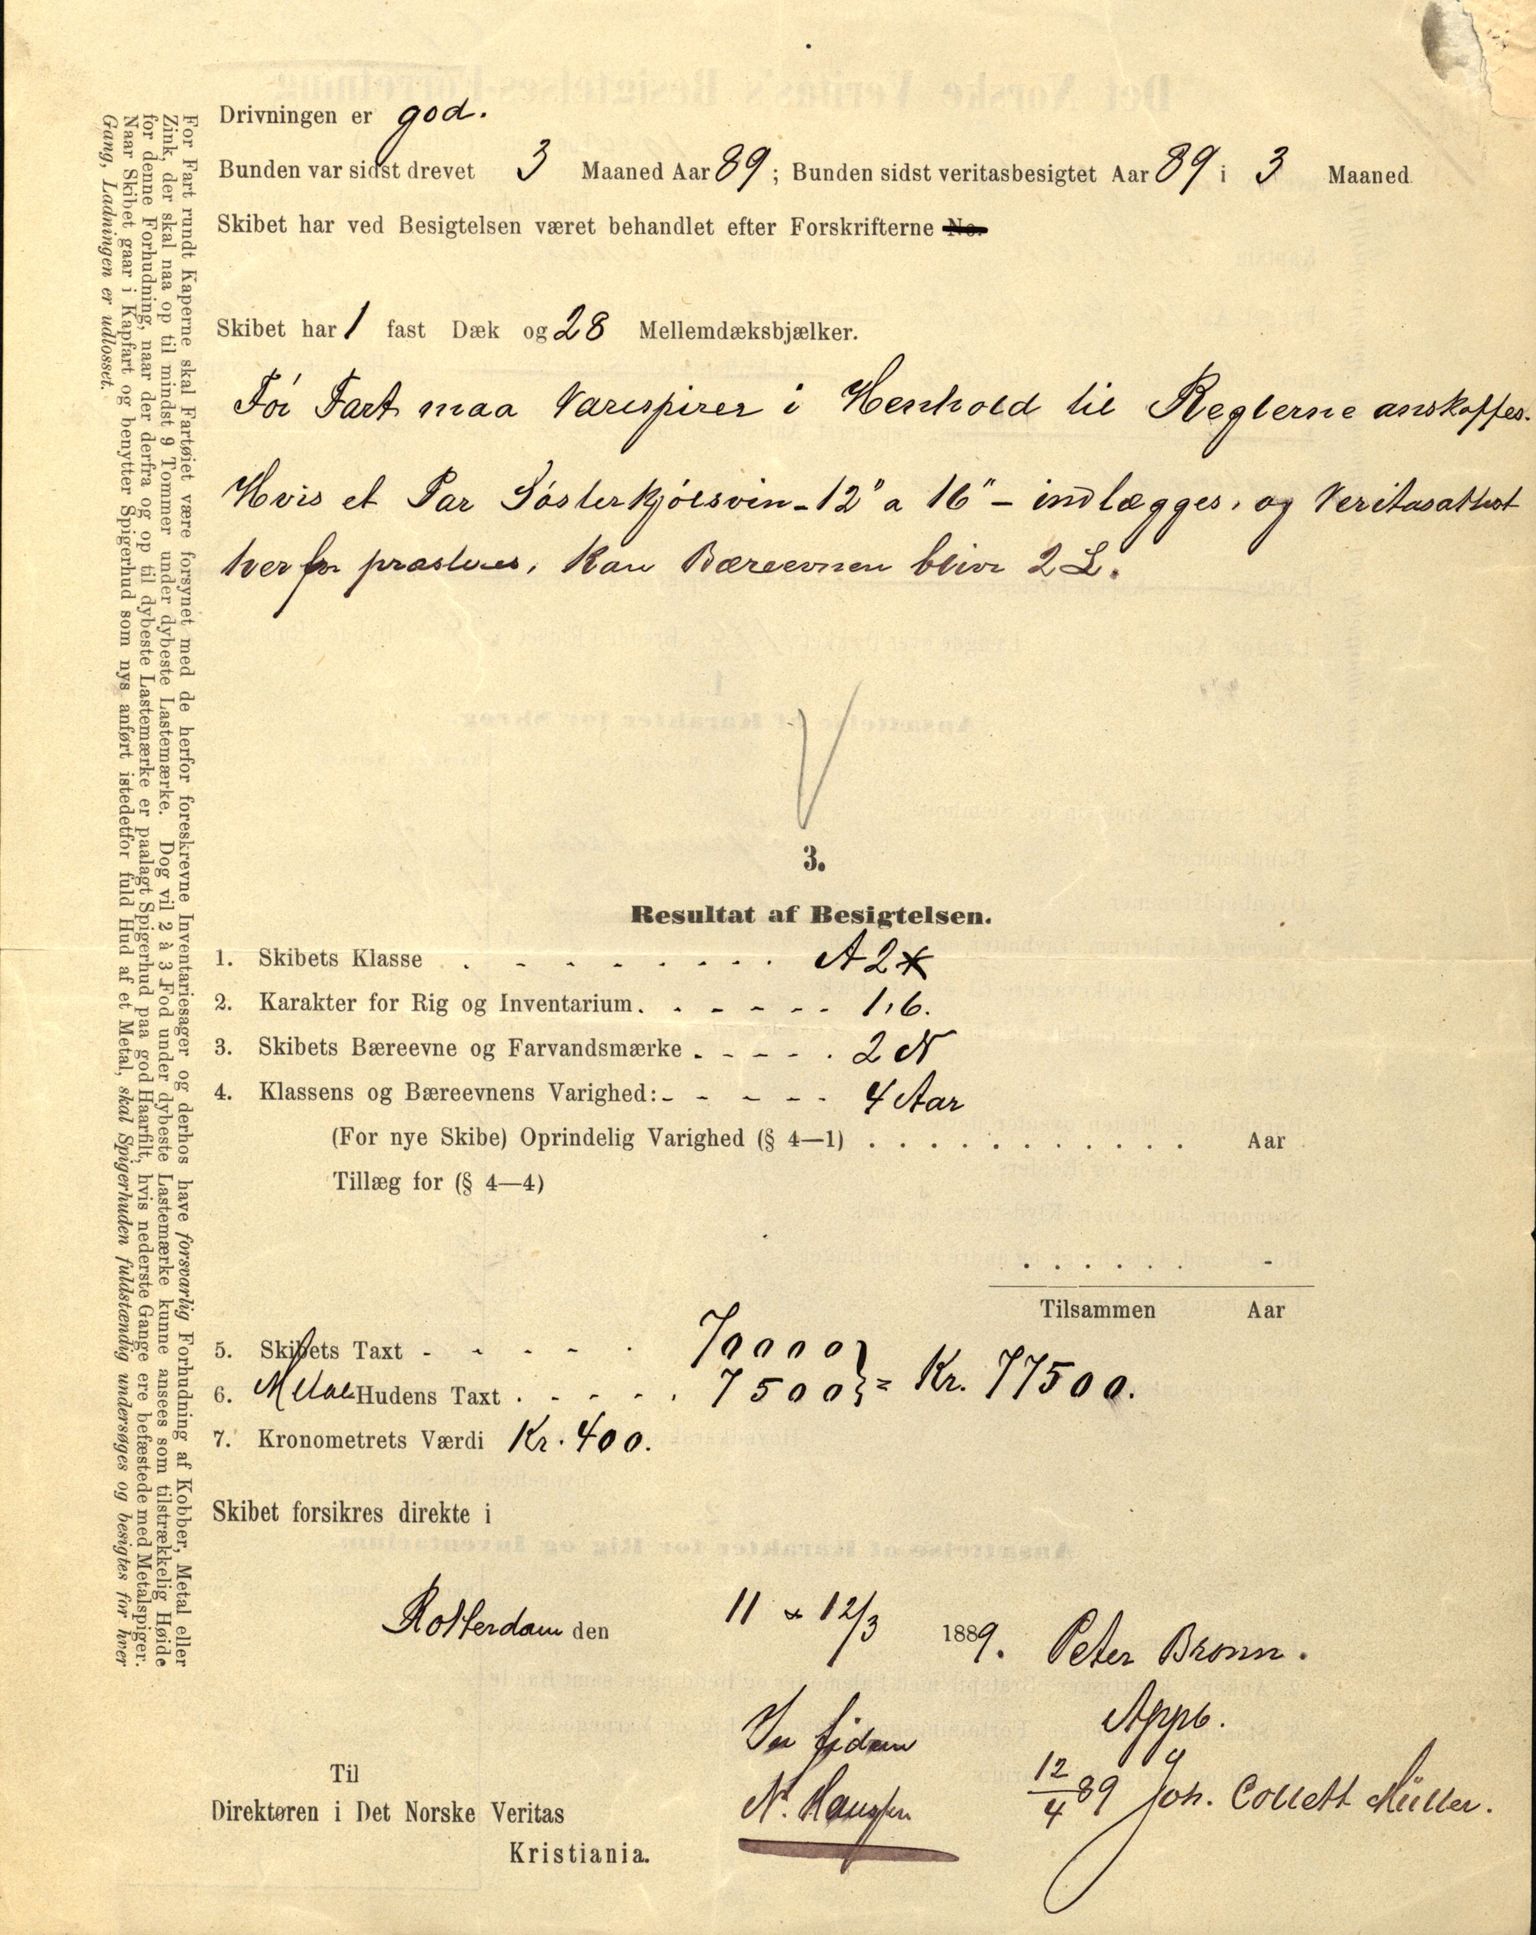 Drivningen er god.
Bunden var sidst drevet 3 Maaned Aar 89; Bunden sidst veritasbesigtet Aar 89 i 3 Maaned
Skibet har ved Besigtelsen været behandlet efter Forskrifterne No.
Skibet har 1 fast Dæk og 28 Mellemdæksbjælker.
För Fart maa Varespirer i Henhold til Reglerne anskaffes.
Hvis et Par Sösterkjölsvin - 12" a 16" - indlægges, og Veritasattest
herfor præsteres, kan Bæreevnen blive 2 L.
3.
Resultat af Besigtelsen.
1. Skibets Klasse A 2*
2. Karakter for Rig og Inventarium. 1,6.
3. Skibets Bæreevne og Farvandsmærke 2 N
4. Klassens og Bæreevnens Varighed: 4 Aar
(For nye Skibe) Oprindelig Varighed (§ 4—1) Aar
Tillæg for (§ 4—4)
Tilsammen Aar
5. Skibets Taxt 70000
6. Metal Hudens Taxt 7500 } = Kr. 77500.
7. Kronometrets Værdi Kr. 400.
Skibet forsikres direkte i
Rotterdam den 11 & 12/3 1889. Peter Bronn.
In fidem
N. Hansen
Appb.
12/4 89 Joh. Collett Müller.
Til
Direktøren i Det Norske Veritas
Kristiania.
For Fart rundt Kaperne skal Fartøiet være forsynet med de herfor foreskrevne Inventariesager og derhos have forsvarlig Forhudning af Kobber, Metal eller
Zink, der skal naa op til mindst 9 Tommer under dybeste Lastemærke. Dog vil 2 à 3 Fod under dybeste Lastemærke kunne ansees som tilstrækkelig Høide
for denne Forhudning, naar der derfra og op til dybeste Lastemærke er paalagt Spigerhud paa god Haarfilt, hvis nederste Gange ere befæstede med Metalspiger.
Naar Skibet gaar i Kapfart og benytter Spigerhud som nys anført istedetfor fuld Hud af et Metal, skal Spigerhuden fuldstændig undersøges og besigtes for hver
Gang, Ladningen er udlosset.